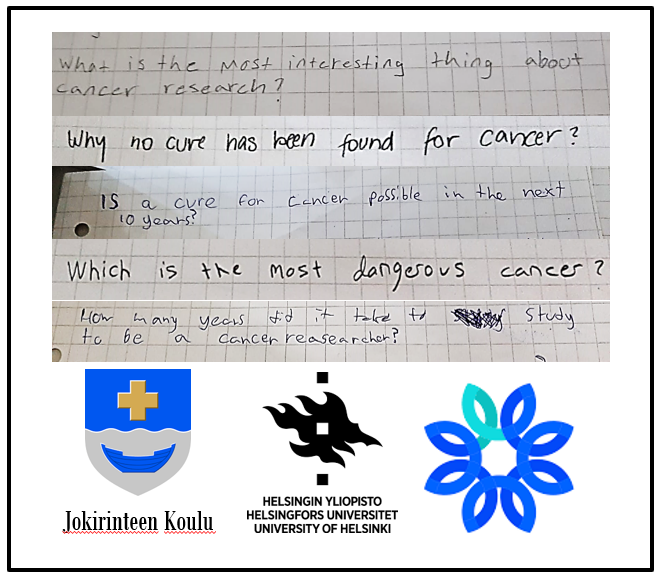 What is the most interesting thing about
cancer research?
Why no cure has been found for cancer?
Is a cure for cancer possible in the next
10 years?
Which is the most dangerous cancer?
How many years did it take to study
to be a cancer reasearcher?
Jokirinteen Koulu
HELSINGIN YLIOPISTO
HELSINGFORS UNIVERSITET
UNIVERSITY OF HELSINKI